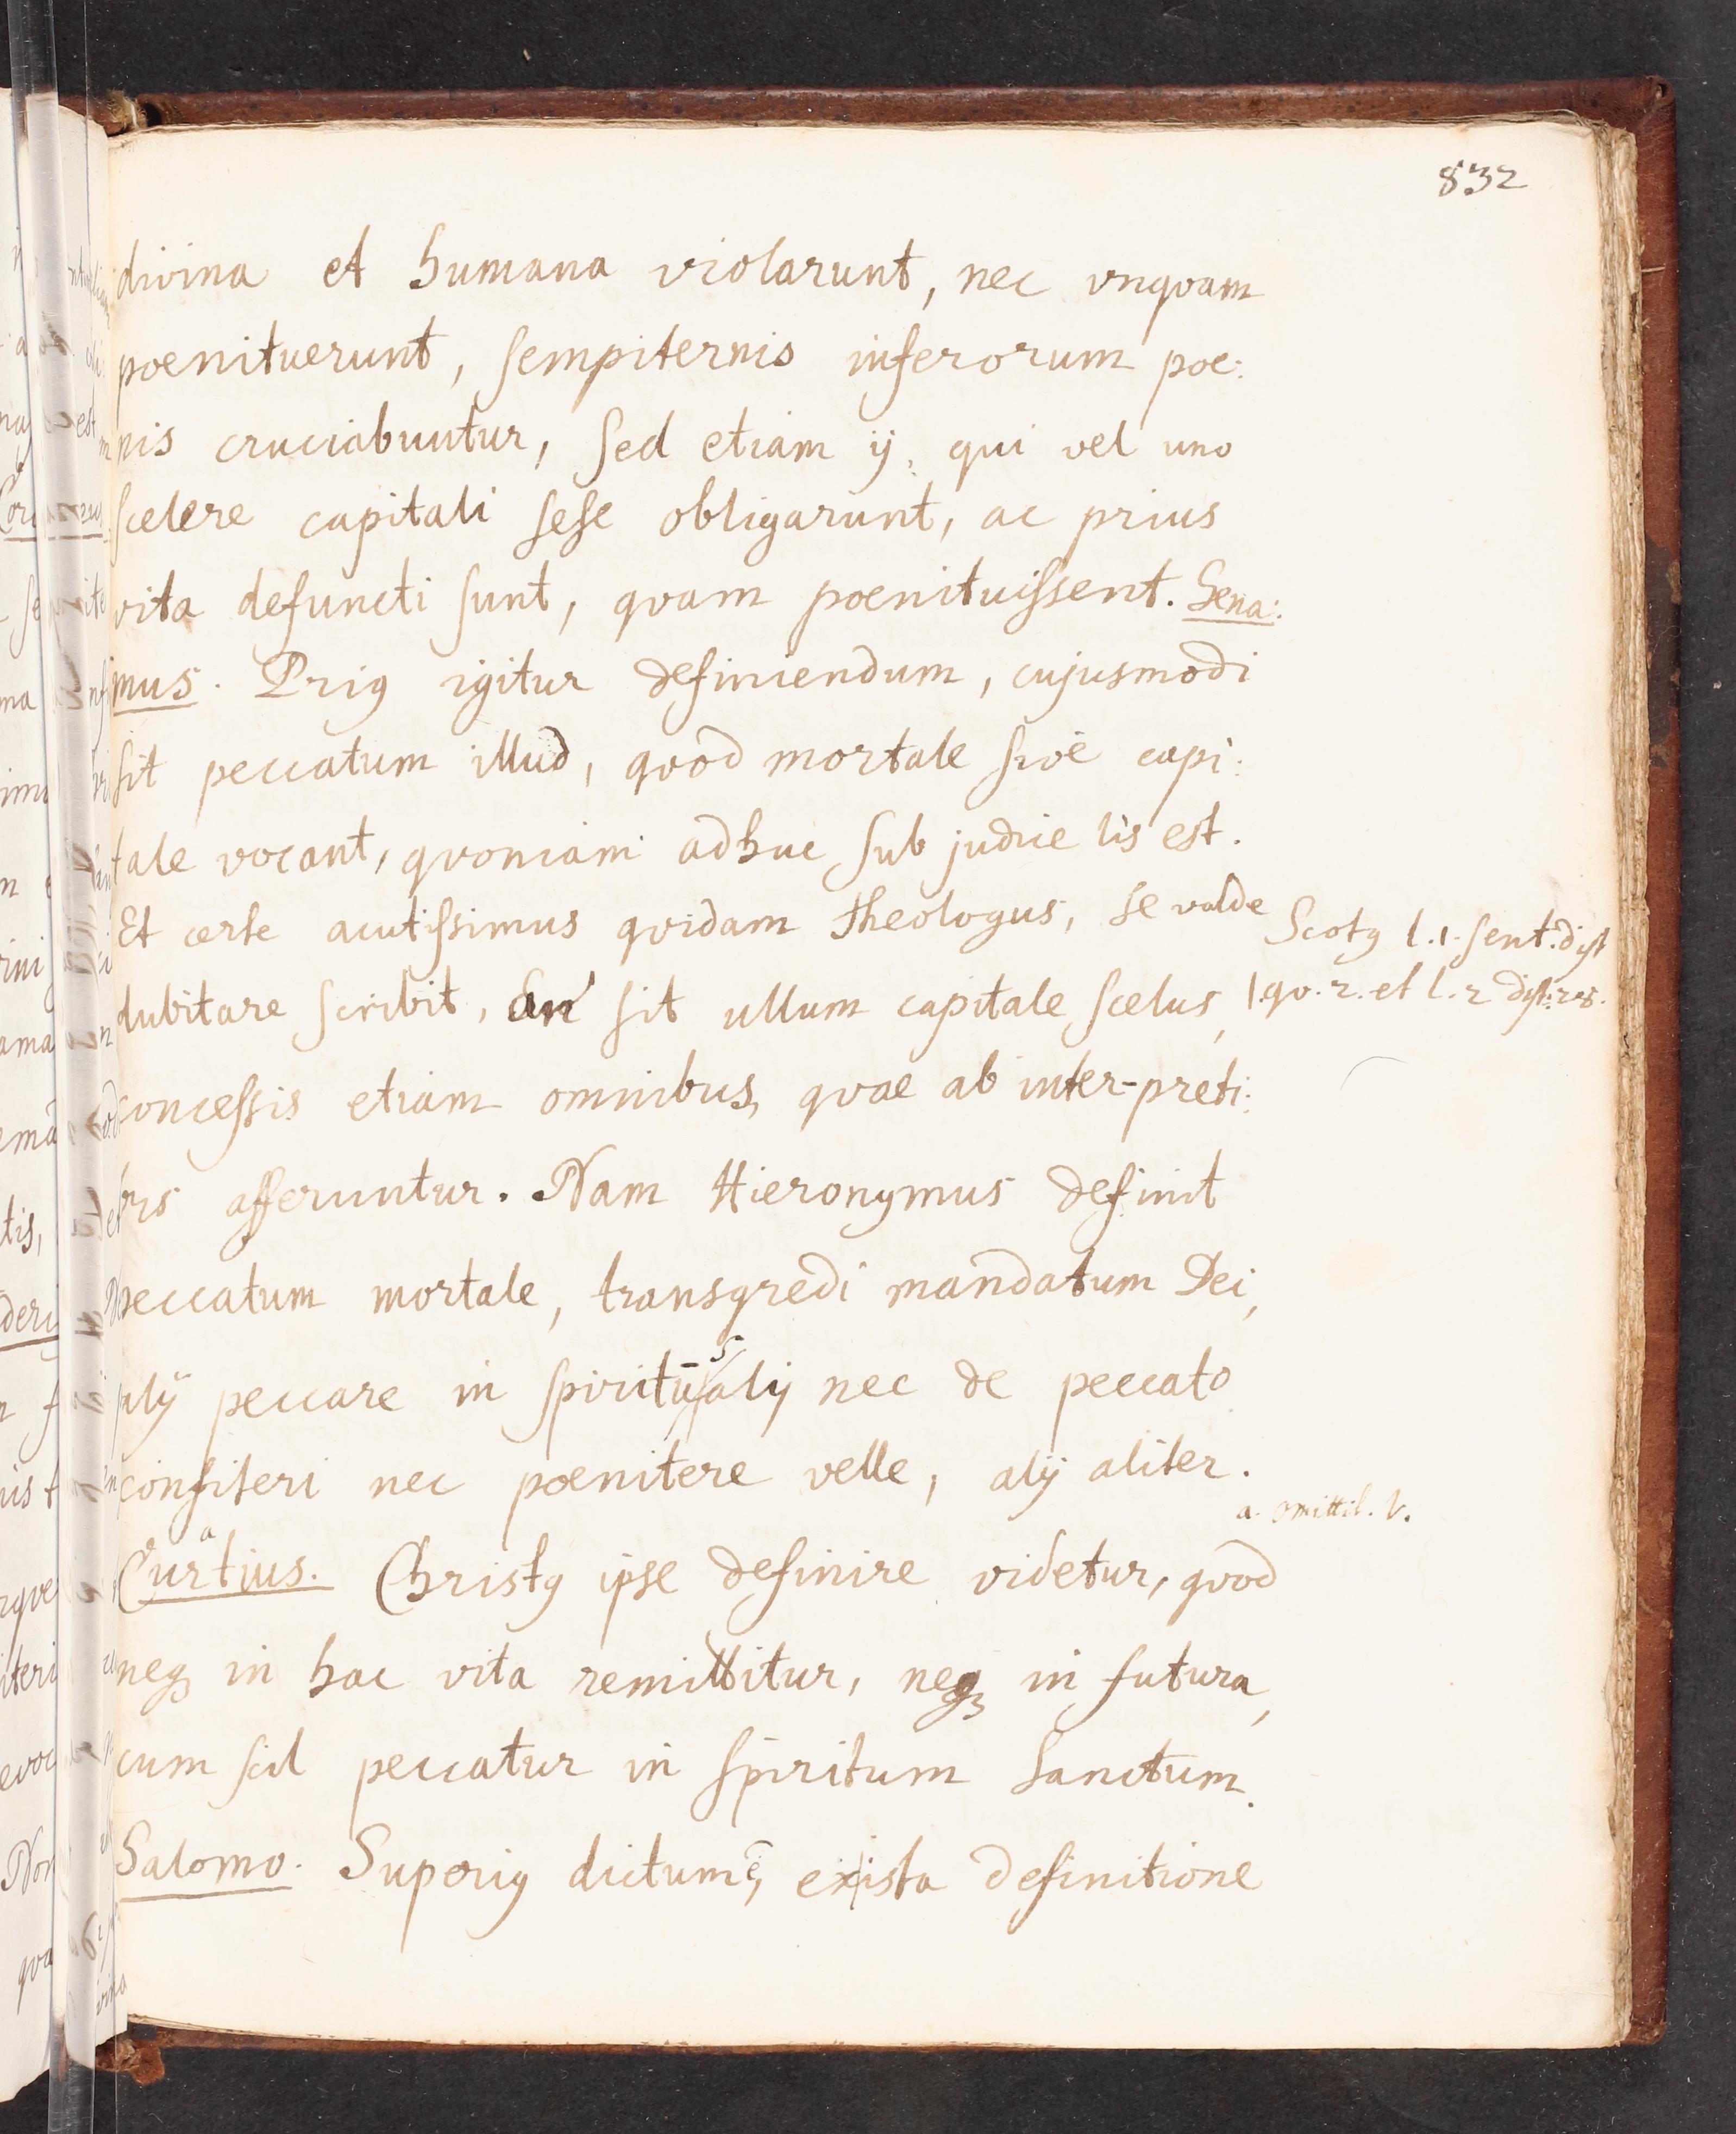 832
divina et humana violarunt, nec vnquam
poenituerunt, sempiternis inferorum poe:
nis cruciabuntur, sed etiam ij, qui vel uno
scelere capitali sese obligarunt, ac prius
vita defuncti sunt, quam poenituissent. Sena:
mus. Prig igitur definiendum, cujusmodi
sit peccatum illud, quod mortale sive capi:
tale vocant, quoniam adhuc sub judice lis est.
Et certe acutissimus quidam theologus, se valde
dubitare scribit, an sit ullum capitale scelus,
Scotg l. 1. sent. dist
1. qv. 2. et l. 2 dist.
concessis etiam omnibus, quae ab inter-preti:
bus afferuntur. Nam Hieronymus definit
peccatum mortale, transgredi mandatum Dei,
alij peccare in spiritū S, alij nec de peccato
confiteri nec poenitere velle, alij aliter.
a. omittit. V.
Curtius. a Christg ipse definire videtur, quod
neq in hac vita remittitur, neq in futura,
cum scil peccatur in spiritum Sanctum.
Salomo. Superig dictum ē, ex ista definitione